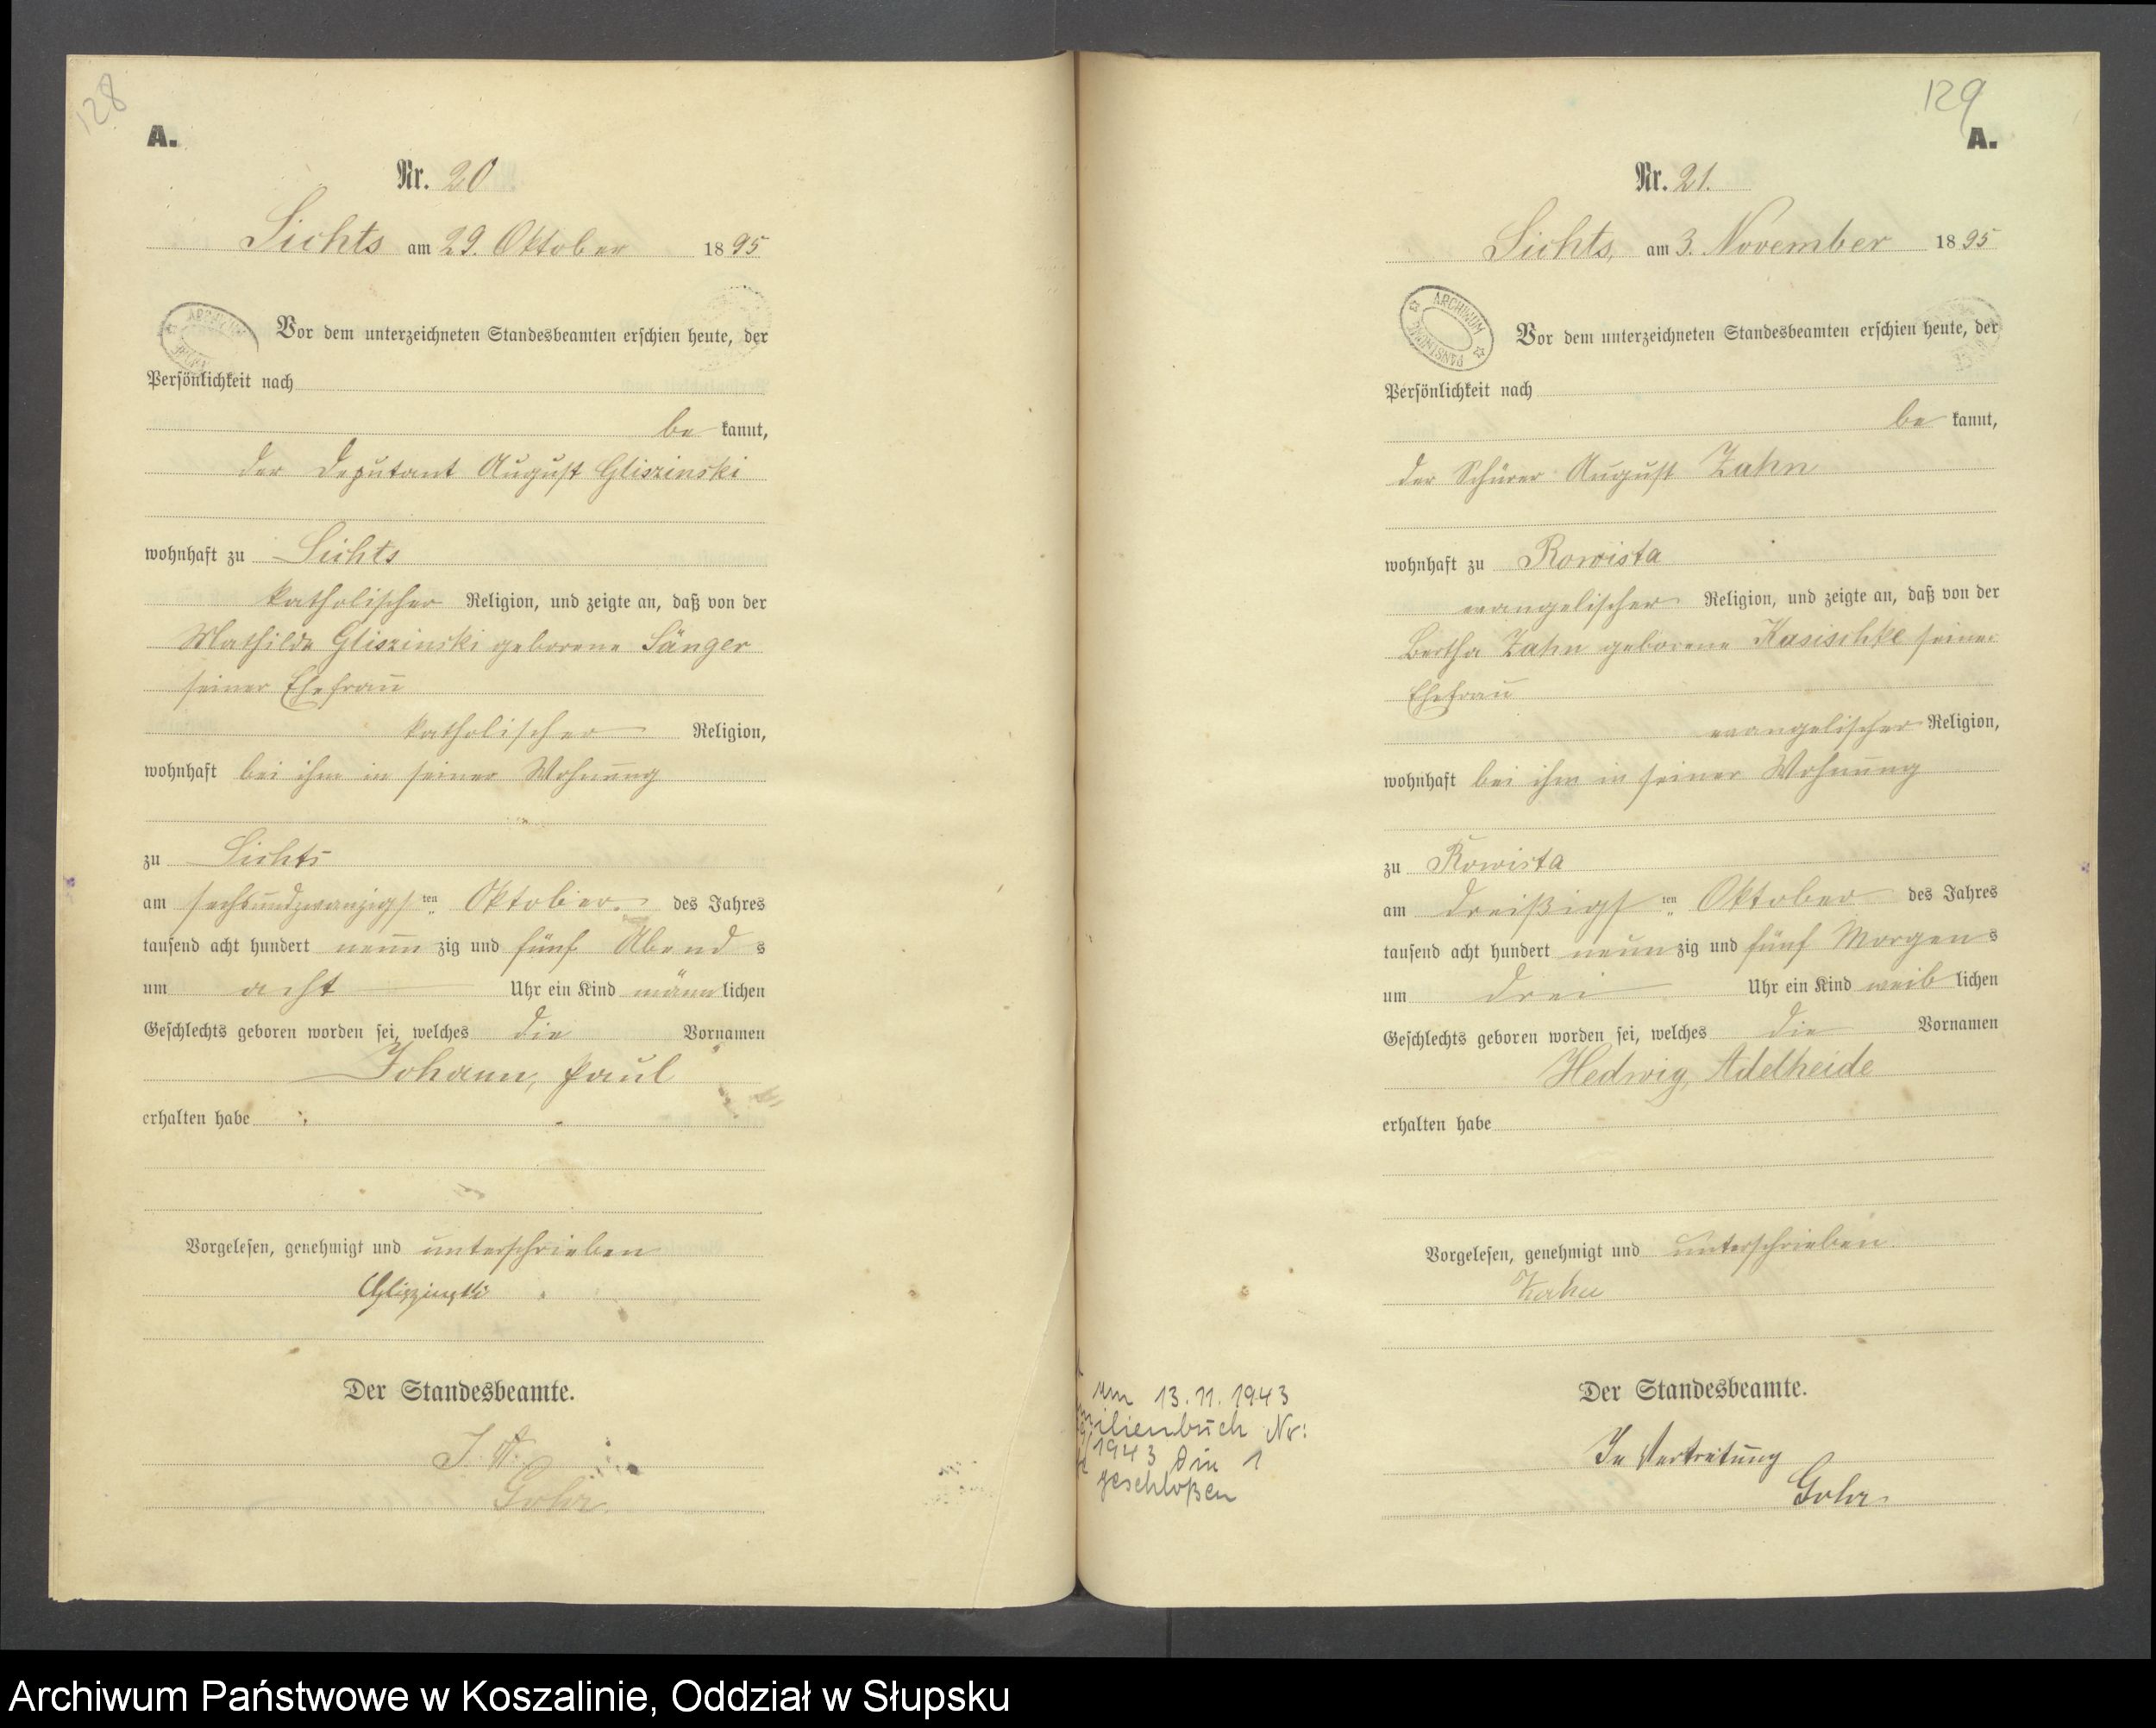 128
A.
Nr. 20
Lichts am 29. Oktober 1895
Vor dem unterzeichneten Standesbeamten erschien heute, der
Persönlichkeit nach
be kannt,
der Deputant August Gliszinski
wohnhaft zu Lichts
katholischer Religion, und zeigte an, daß von der
Mathilde Gliszinski geborene Sänger
seiner Ehefrau
katholischer Religion,
wohnhaft bei ihm in seiner Wohnung
zu Lichts
am sechsundzwanzigsten Oktober des Jahres
tausend acht hundert neun zig und fünf Abend s
um acht Uhr ein Kind männlichen
Geschlechts geboren worden sei, welches die Vornamen
Johann, Paul
erhalten habe
Vorgelesen, genehmigt und unterschrieben
Gliszinski
Der Standesbeamte.
J. V.
Gohr
129
A.
Nr. 21.
Lichts, am 3. November 1895
ARCHIWUM
Vor dem unterzeichneten Standesbeamten erschien heute, der
Persönlichkeit nach
be kannt,
der Schürer August Zahn
wohnhaft zu Rowista
evangelischer Religion, und zeigte an, daß von der
Bertha Zahn geborene Kasischke seiner
Ehefrau
evangelischer Religion,
wohnhaft bei ihm in seiner Wohnung
zu Rowista
am dreißigsten Oktober des Jahres
tausend acht hundert neun zig und fünf Morgens
um drei Uhr ein Kind weib lichen
Geschlechts geboren worden sei, welches die Vornamen
Hedwig, Adelheide
erhalten habe
Vorgelesen, genehmigt und unterschrieben
Zahn
Der Standesbeamte.
In Vertretung
Gohr
am 13.11.1943
milienbuch Nr:
1943 Din 1
geschloßen
Archiwum Państwowe w Koszalinie, Oddział w Słupsku